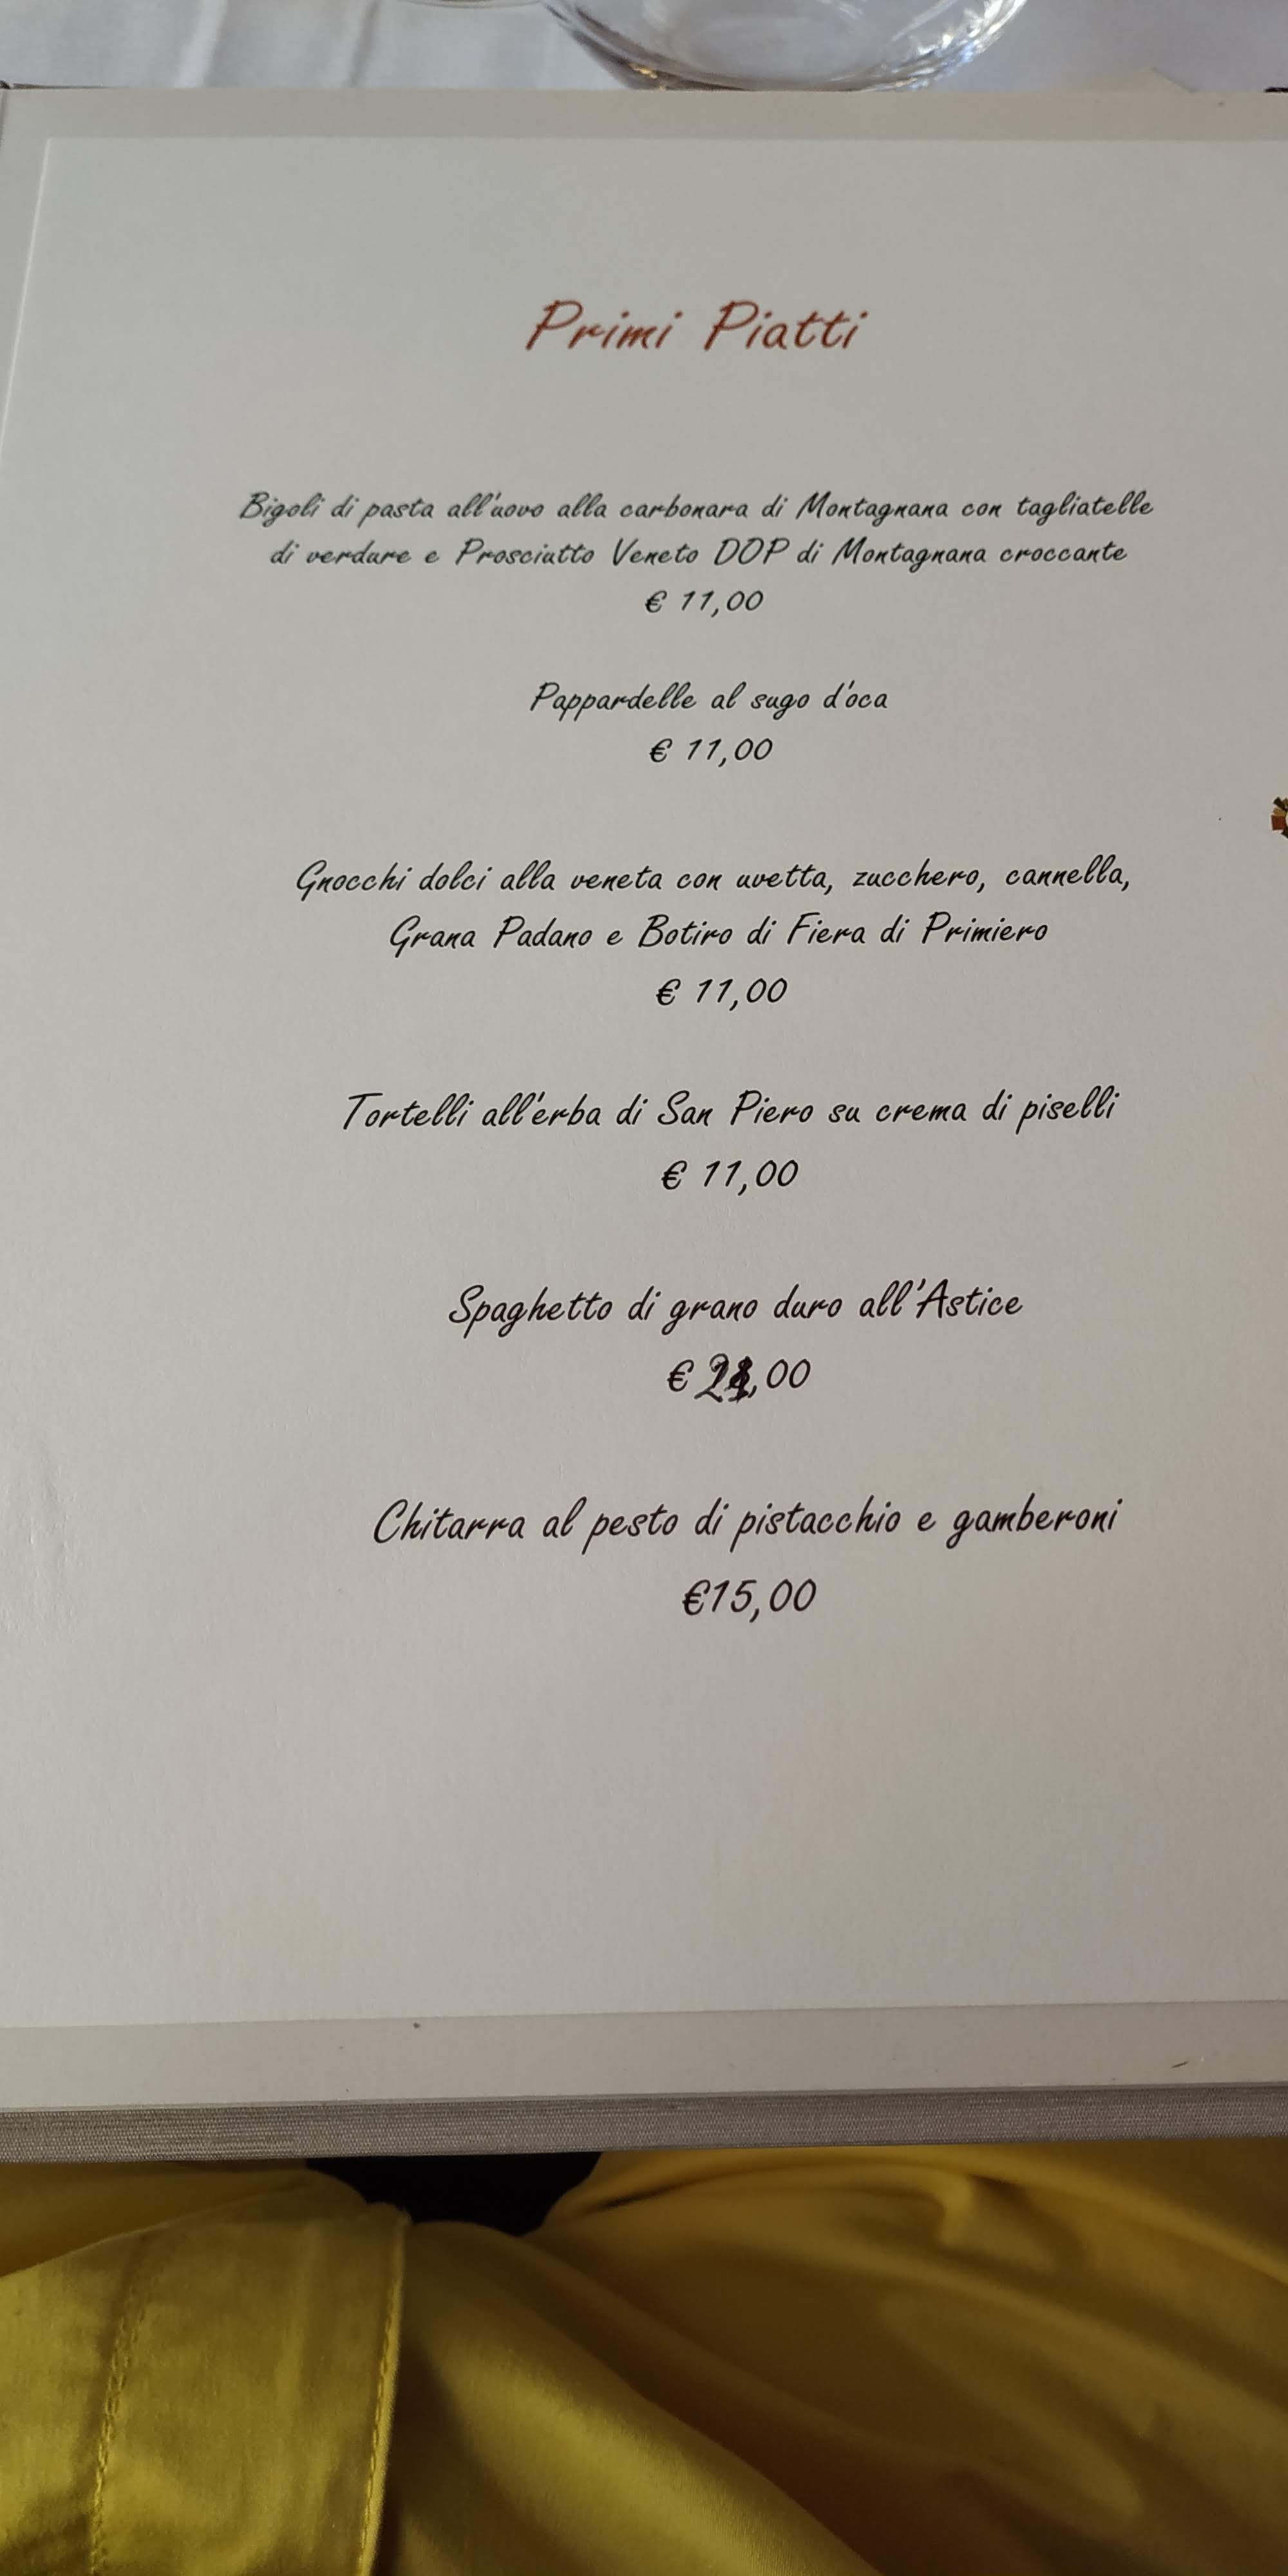 Primi Piatti
Bigoli di pasta all'uovo alla carbonara di Montagnana con tagliatelle
di verdure e Prosciutto Veneto DOP di Montagnana croccante
€ 11,00
Pappardelle al sugo d'oca
€ 11,00
Gnocchi dolci alla veneta con uvetta, zucchero, cannella,
Grana Padano e Botiro di Fiera di Primiero
€ 11,00
Tortelli all'erba di San Piero su crema di piselli
€ 11,00
Spaghetto di grano duro all'Astice
€
Chitarra al pesto di pistacchio e gamberoni
€15,00